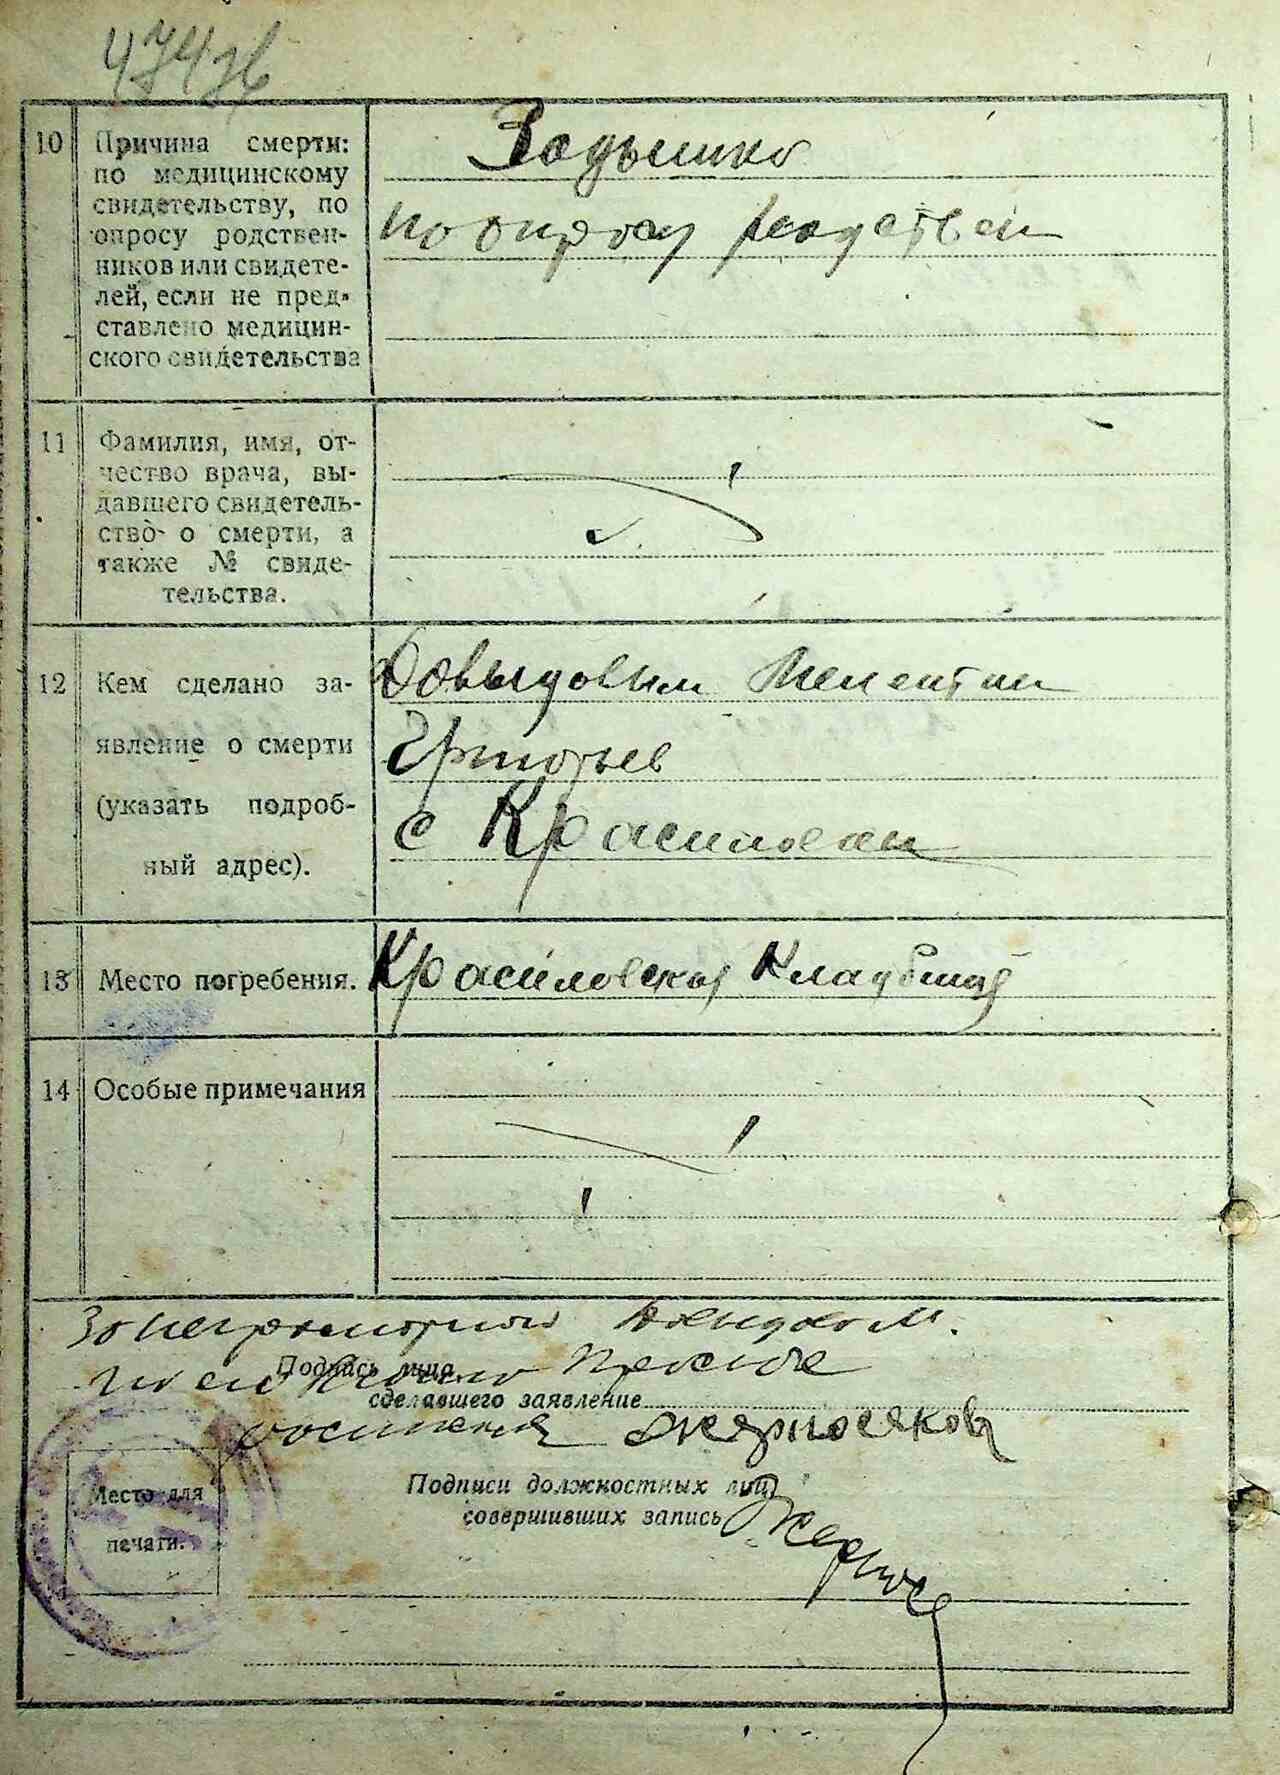 474зв
10 Причина смерти: по медицинскому свидетельству, по опросу родственников или свидетелей, если не представлено медицинского свидетельства
Задышка
по опросу родствен
11 Фамилия, имя, отчество врача, выдавшего свидетельство о смерти, а также № свидетельства.
12 Кем сделано заявление о смерти (указать подробный адрес).
Довыдовым
Григорьев
с Красилован
13 Место погребения.
Красиловская Кладбища
14 Особые примечания
За неграмотной Довыдов М.
по его просьбе
Подпись лица,
сделавшего заявление
Жерносяков
Подписи должностных лиц,
совершивших запись
Место для
печати.